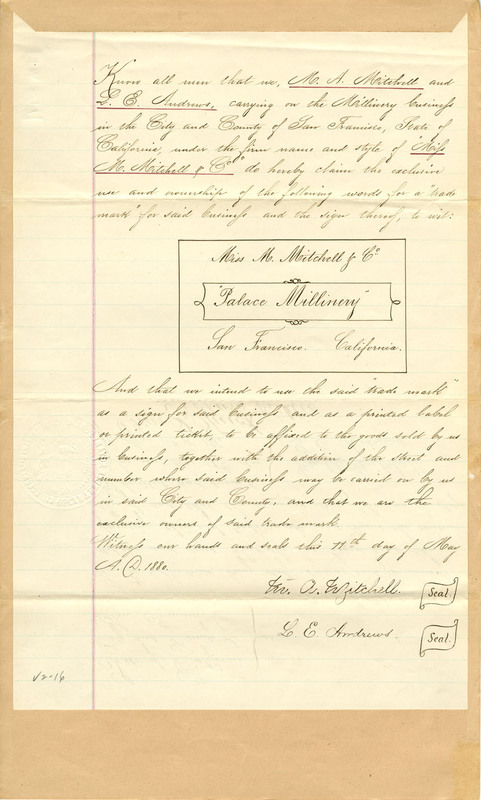 Know all men that we, M. A. Mitchell and
L. E. Andrews, carrying on the Millinery business
in the City and County of San Francisco, State of
California, under the firm name and style of Miss
M. Mitchell & Co do hereby claim the exclusive
use and ownership of the following words for a "trade
mark" for said business and the sign thereof, to wit:
Miss M. Mitchell & Co
"Palace Millinery"
San Francisco. California.
And that we intend to use the said "trade mark"
as a sign for said business and as a printed label
or printed ticket, to be affixed to the goods sold by us
in business, together with the addition of the street and
number where said business may be carried on by us
in said City and County, and that we are the
exclusive owners of said trade mark.
Witness our hands and seals this 11th day of May
A. D. 1880.
M. A. Mitchell. Seal.
L. E. Andrews. Seal.
V2-16